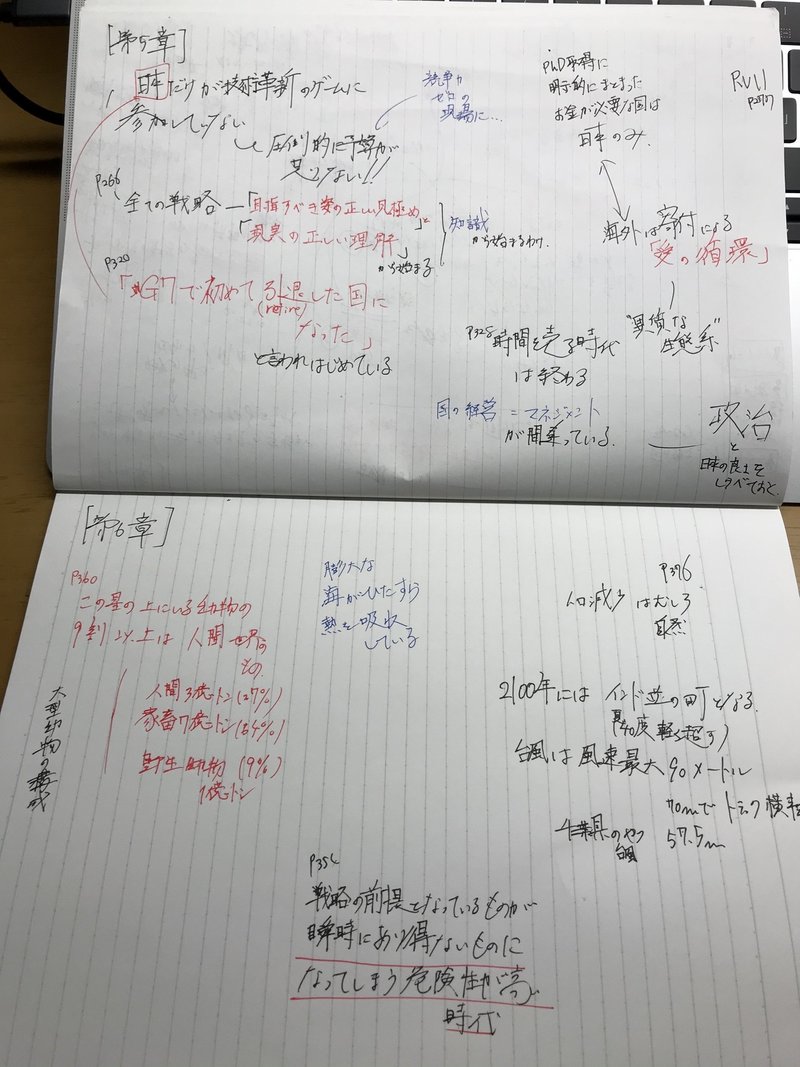 [第5章]
日本だけが技術革新のゲームに
参加していない
圧倒的に予算が
足りない!!
競争力
ゼロの
現場に…
PhD取得に
明示的にまとまった
お金が必要な国は
日本のみ.
海外は寄付による
「愛の循環」
"異質な
生態系"
P266
全ての戦略―「目指すべき姿の正しい見極め」と
「現実の正しい理解」
から始まる
知識
から始まるわけ.
P320
「G7で初めて引退した国に
(retire)
なった」
と言われはじめている
P328 時間を売る時代
は終わる
国の経営=マネジメント
が間違っている.
政治
と
日本の良さを
しらべておく.
[第6章]
P360
この星の上にいる動物の
9割以上は人間世界の
もの.
大型動物の構成
人間3億トン(27%)
家畜7億トン(64%)
野生動物(9%)
1億トン
膨大な
海がひたすら
熱を吸収
している
P376
人口減少はむしろ
自然
2100年にはインド並の町となる.
(夏40度軽く超す)
台風は風速最大90メートル
70mでトラック横転
千葉県のやつ 57.5m
台風
P354
戦略の前提となっているものが
瞬時にあり得ないものに
なってしまう危険性が高い
時代